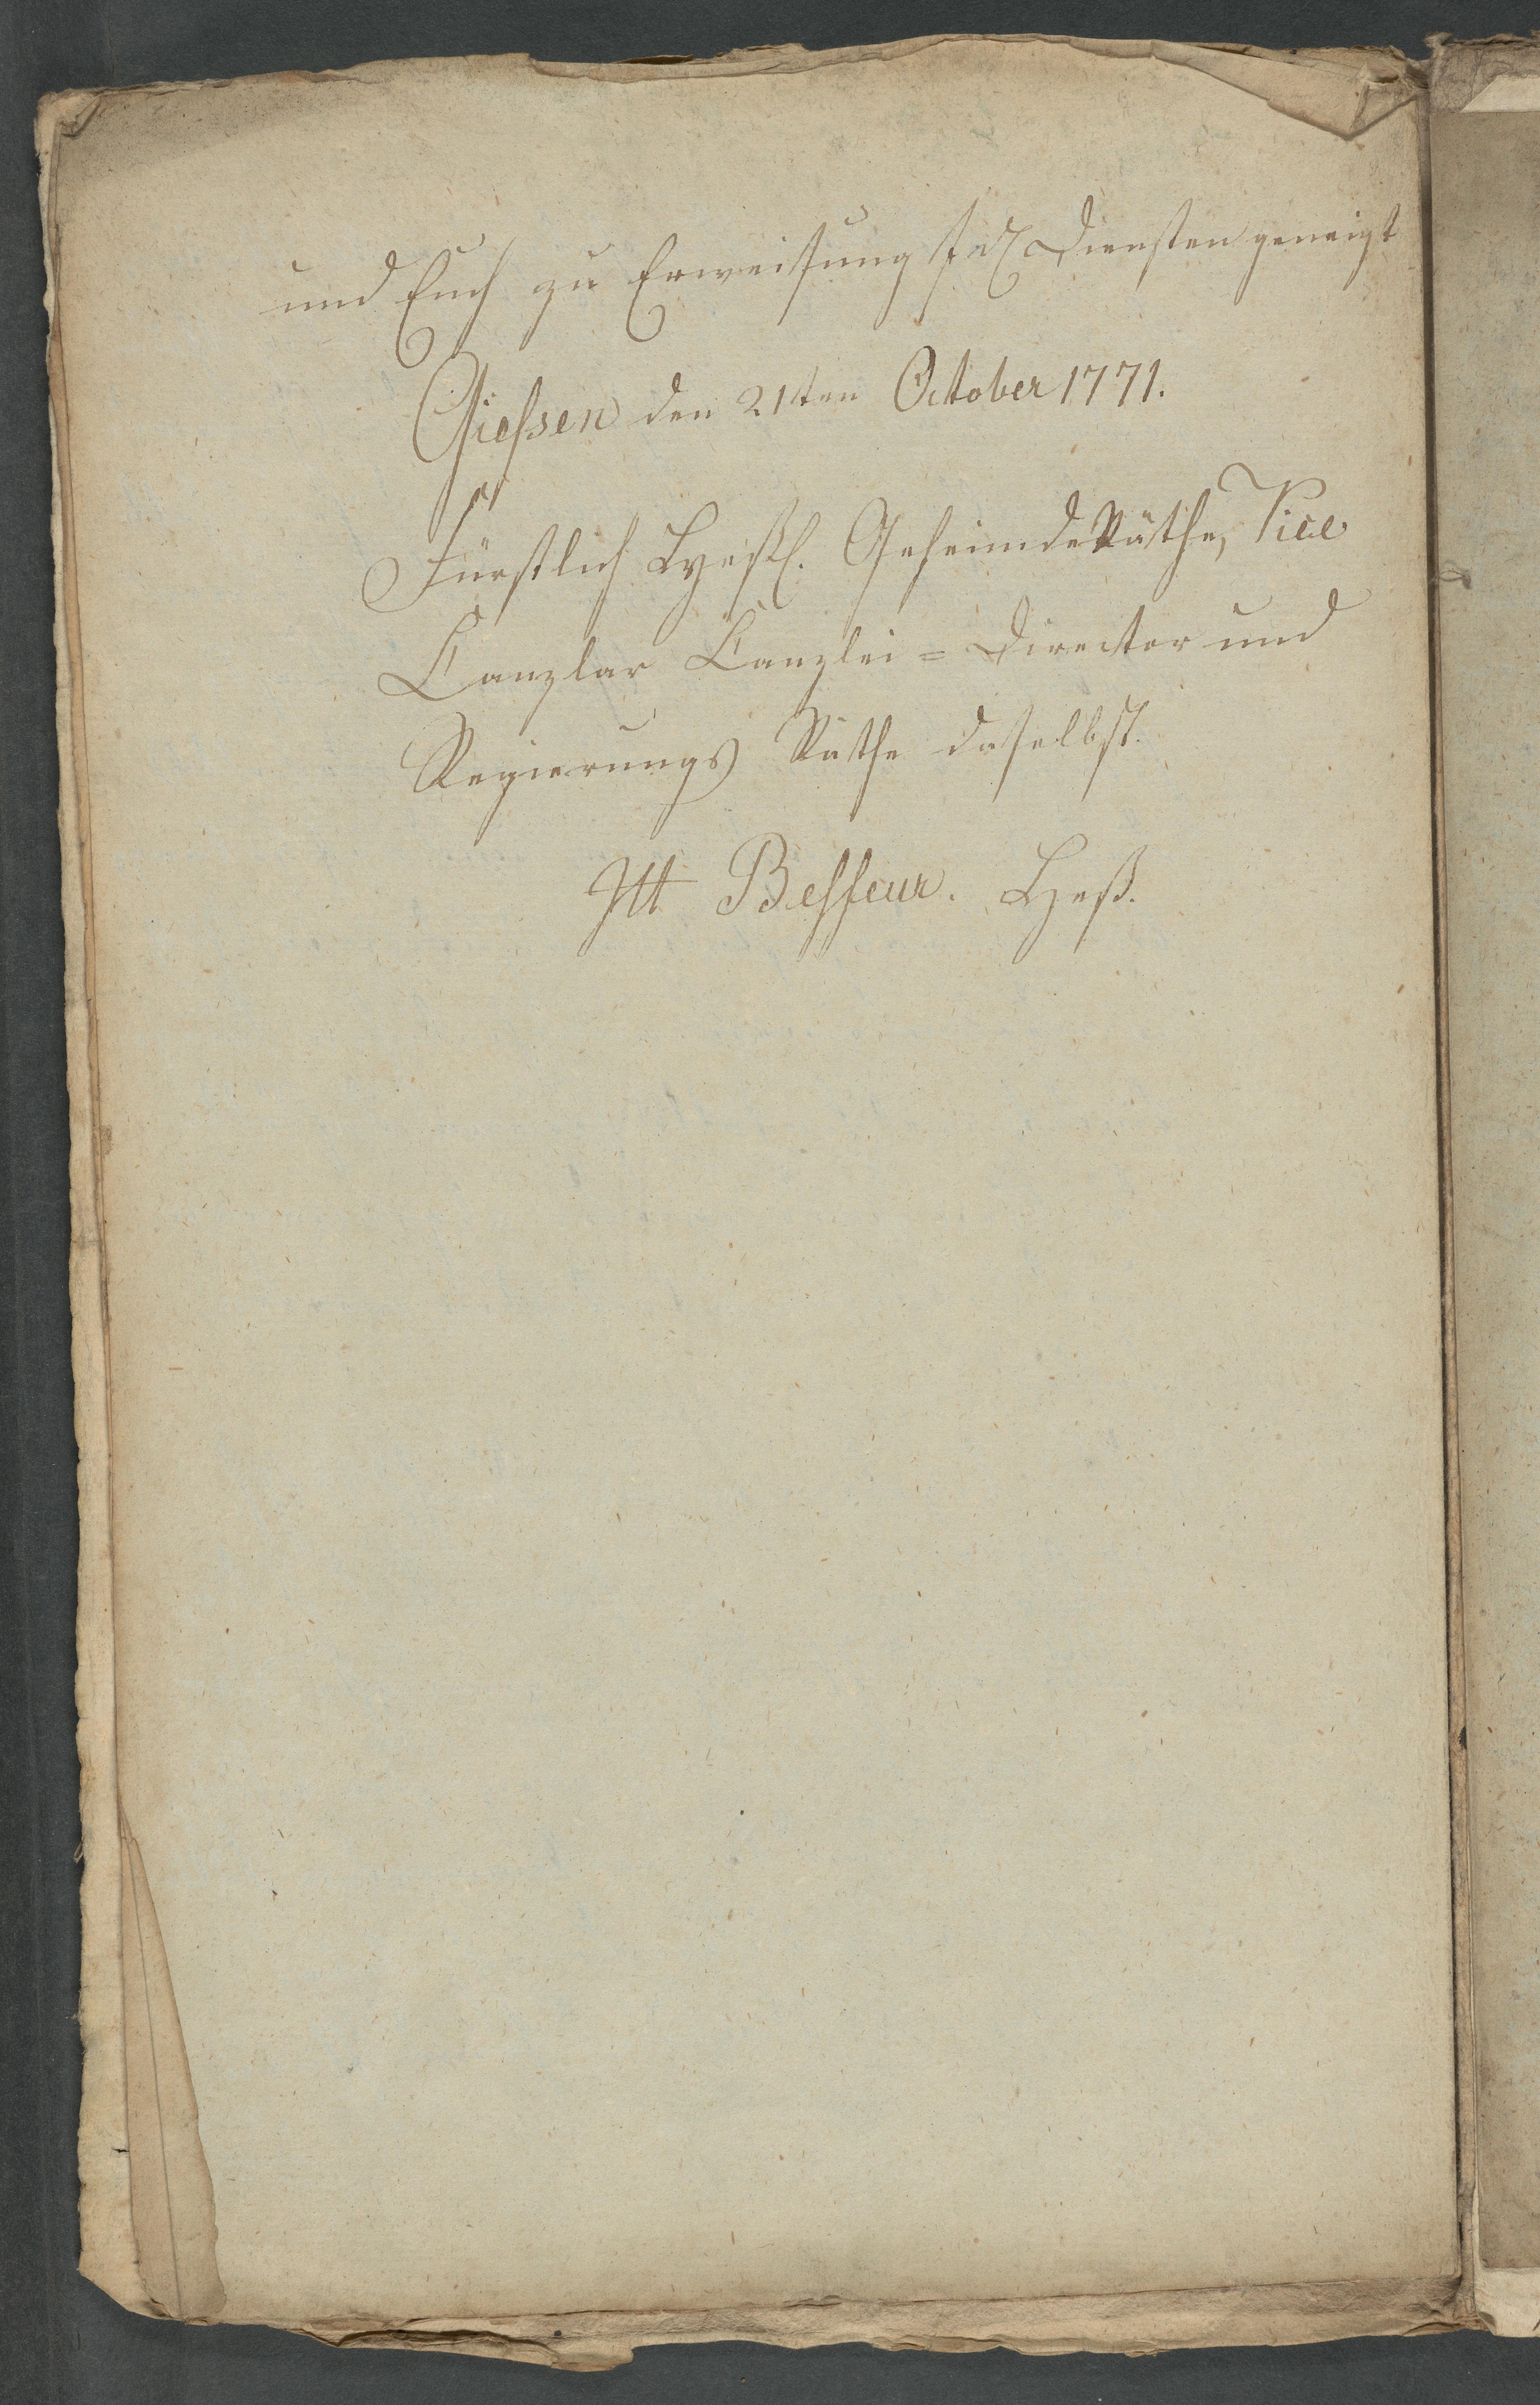 und Euch zu Erweisung Diensten geneigt
Giessen den 21ten October 1771.
Fürstlich Heßl. Geheimde Räthe, Vice
Canzlar Canzlei = Director und
Regierungs Räthe daselbst.
Heß.